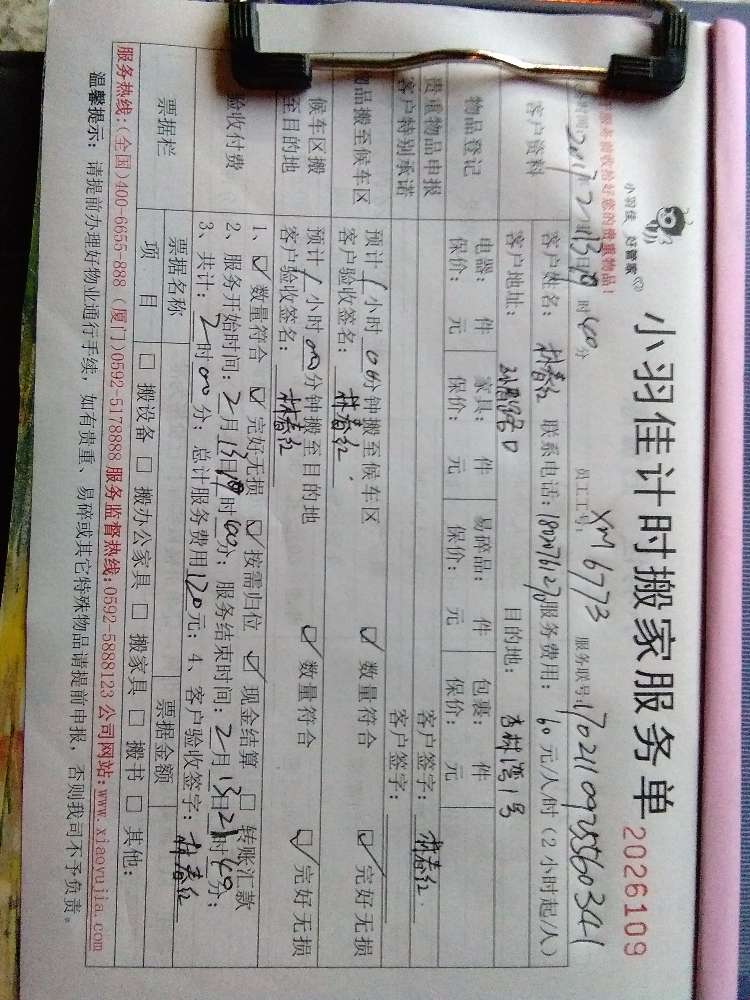 小羽佳 好管家
小羽佳计时搬家服务单
2026109
服务前收拾好您的贵重物品!
2017年2月13日19时40分 员工工号: XM6773 服务联号:
客户资料
客户姓名: 林春红 联系电话: 服务费用: 60元/人/时(2小时起/人)
客户地址: 目的地: 杏林湾1号
物品登记
电器: 件 家具: 件 易碎品: 件 包裹: 件
保价: 元 保价: 元 保价: 元 保价: 元
贵重物品申报 客户签字: 林春红
客户特别承诺 客户签字:
物品搬至候车区
预计1小时00分钟搬至候车区 ☑数量符合 ☑完好无损
客户验收签名: 林春红
候车区搬至目的地
预计1小时00分钟搬至目的地 ☑数量符合 ☑完好无损
客户验收签名: 林春红
验收付费
1、☑数量符合 ☑完好无损 ☑按需归位 ☑现金结算 □转账汇款
2、服务开始时间: 2月13日19时40分; 服务结束时间: 2月13日21时40分;
3、共计: 2时00分; 总计服务费用120元; 4、客户验收签字: 林春红
票据栏
票据名称 票据金额
项 目 □搬设备 □搬办公家具 □搬家具 □搬书 □其他:
服务热线:(全国)400-6655-888 (厦门)0592-5178888 服务监督热线:0592-5888123 公司网站:www.xiaoyujia.com
温馨提示: 请提前办理好物业通行手续, 如有贵重、易碎或其它特殊物品请提前申报, 否则我司不予负责。